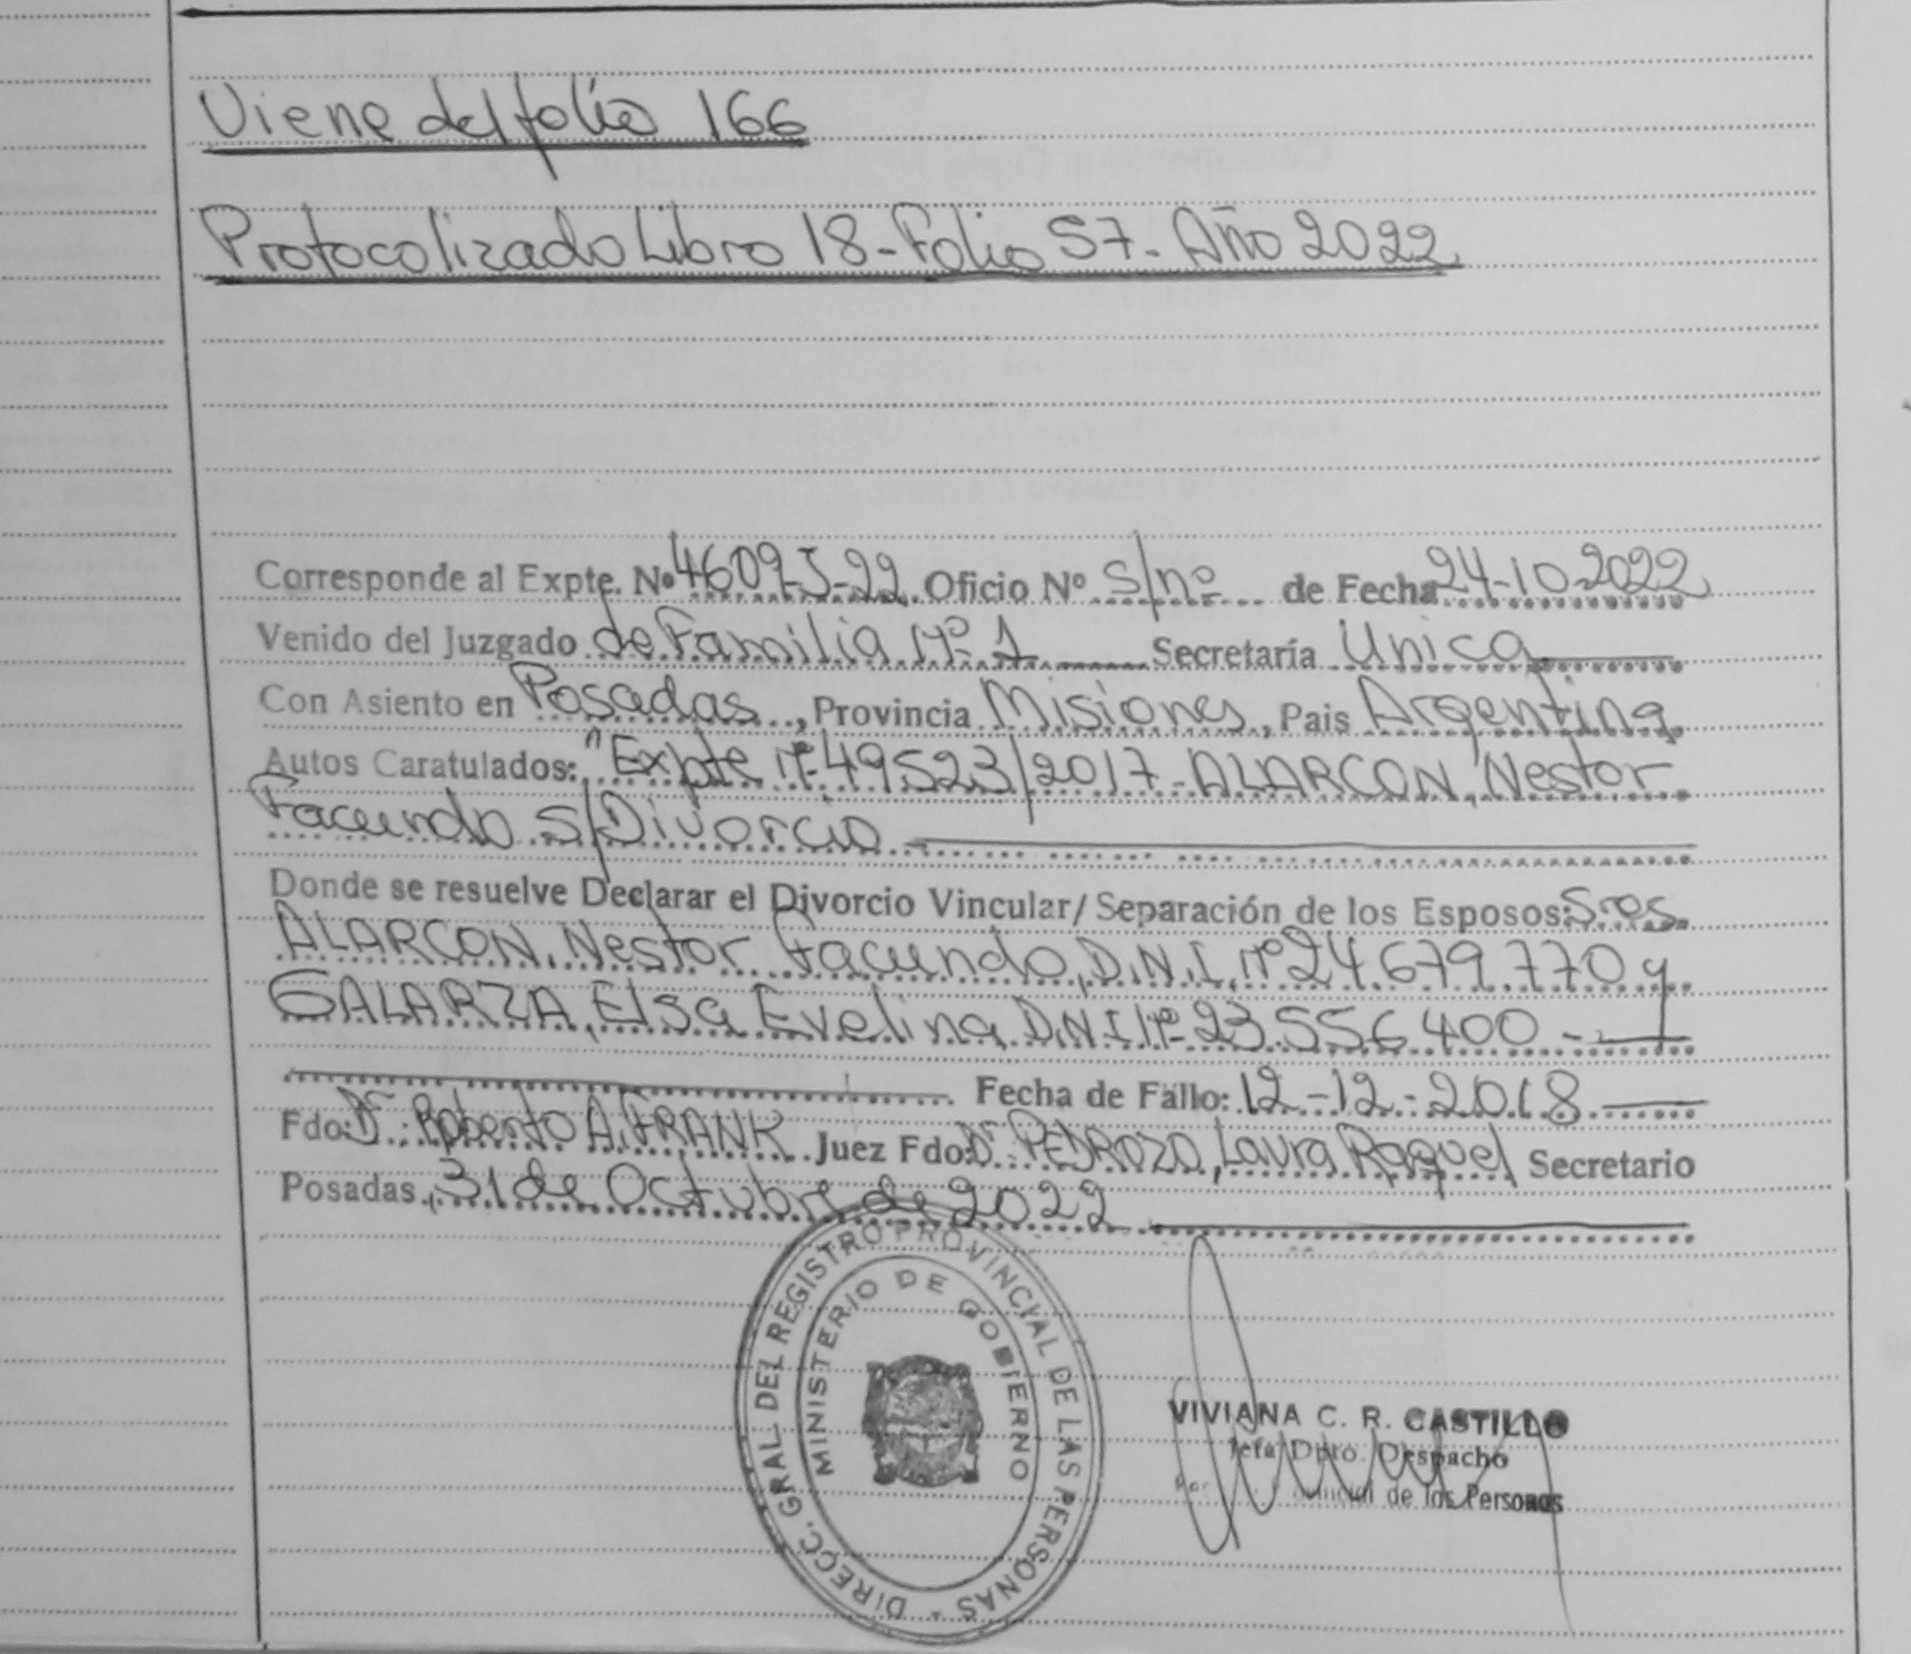 Viene del folio 166
Protocolizado Libro 18-Folio 57-Año 2022
Corresponde al Expte. Nº 4609-J-22 Oficio Nº S/nº de Fecha 24-10-2022
Venido del Juzgado de Familia Nº 1 Secretaría Unica
Con Asiento en Posadas, Provincia Misiones, Pais Argentina
Autos Caratulados: "Expte Nº 49523/2017-ALARCON, Nestor
Facundo S/Divorcio
Donde se resuelve Declarar el Divorcio Vincular/Separación de los Esposos: Sres.
ALARCON, Nestor Facundo, D.N.I. Nº 24.679.770 y
GALARZA, Elsa Evelina, D.N.I Nº 23.556.400-
Fecha de Fallo: 12-12-2018
Fdo: Dr. Roberto A. FRANK Juez Fdo: Dr. PEDROZO, Laura Raquel Secretario
Posadas, 31 de Octubre de 2022
DIRECC. GRAL DEL REGISTRO PROVINCIAL DE LAS PERSONAS -
MINISTERIO DE GOBIERNO
VIVIANA C. R. CASTILLO
Jefa Dpto. Despacho
de las Personas